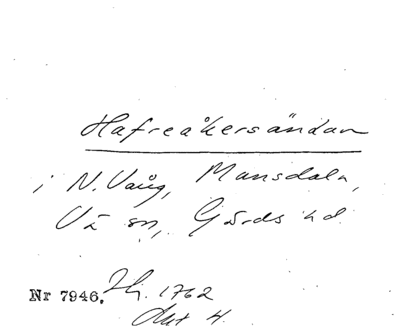 Hafreåkersändan
i N. Vång, Mansdala,
Vä sn, Gärds hd
Nr 7946. Hj. 1762
Akt 4.